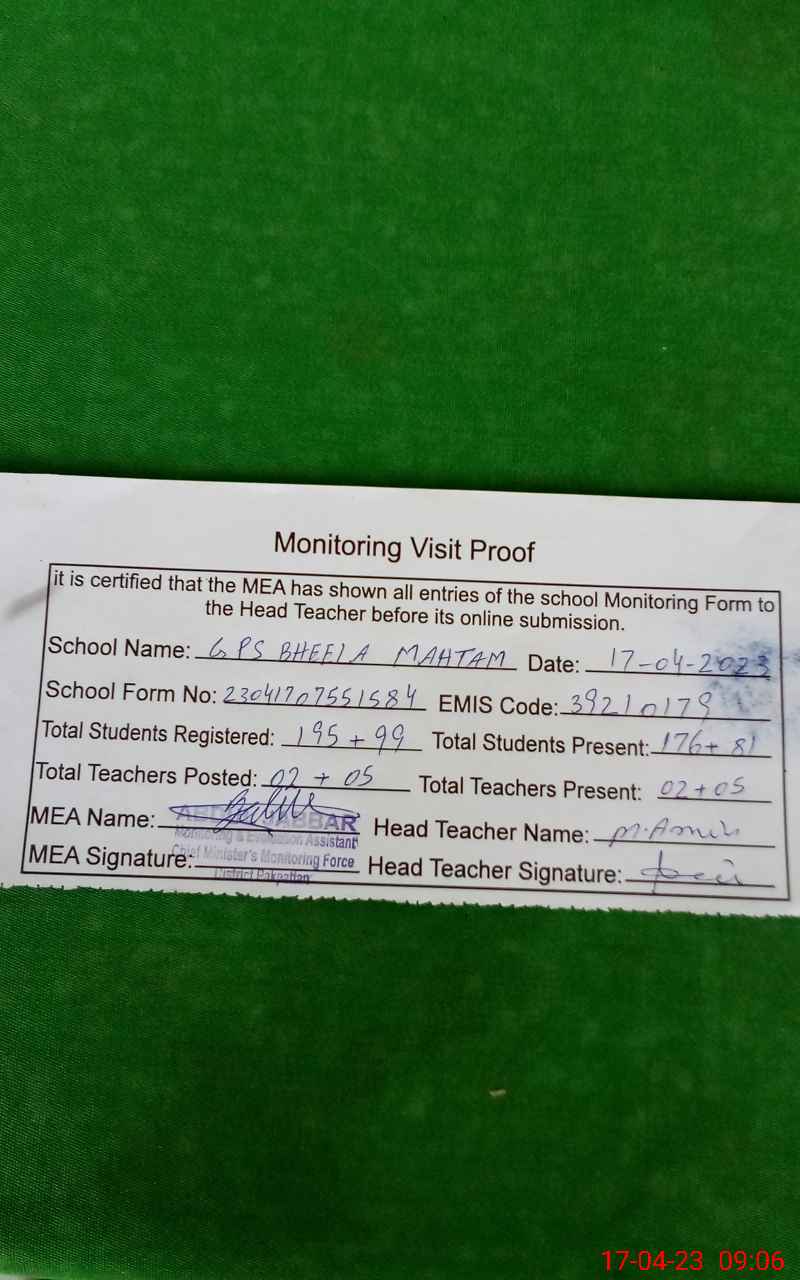 Monitoring Visit Proof
it is certified that the MEA has shown all entries of the school Monitoring Form to
the Head Teacher before its online submission.
School Name: GPS BHEELA MAHTAM Date: 17-04-2023
School Form No: 23041707551584 EMIS Code: 39210179
Total Students Registered: 195 + 99 Total Students Present: 176+ 81
Total Teachers Posted: 02 + 05 Total Teachers Present: 02+05
MEA Name: ABDUL JABBAR Head Teacher Name: M. Amin
Monitoring & Evaluation Assistant
MEA Signature: Chief Minister's Monitoring Force Head Teacher Signature:
District Pakpattan
17-04-23 09:06